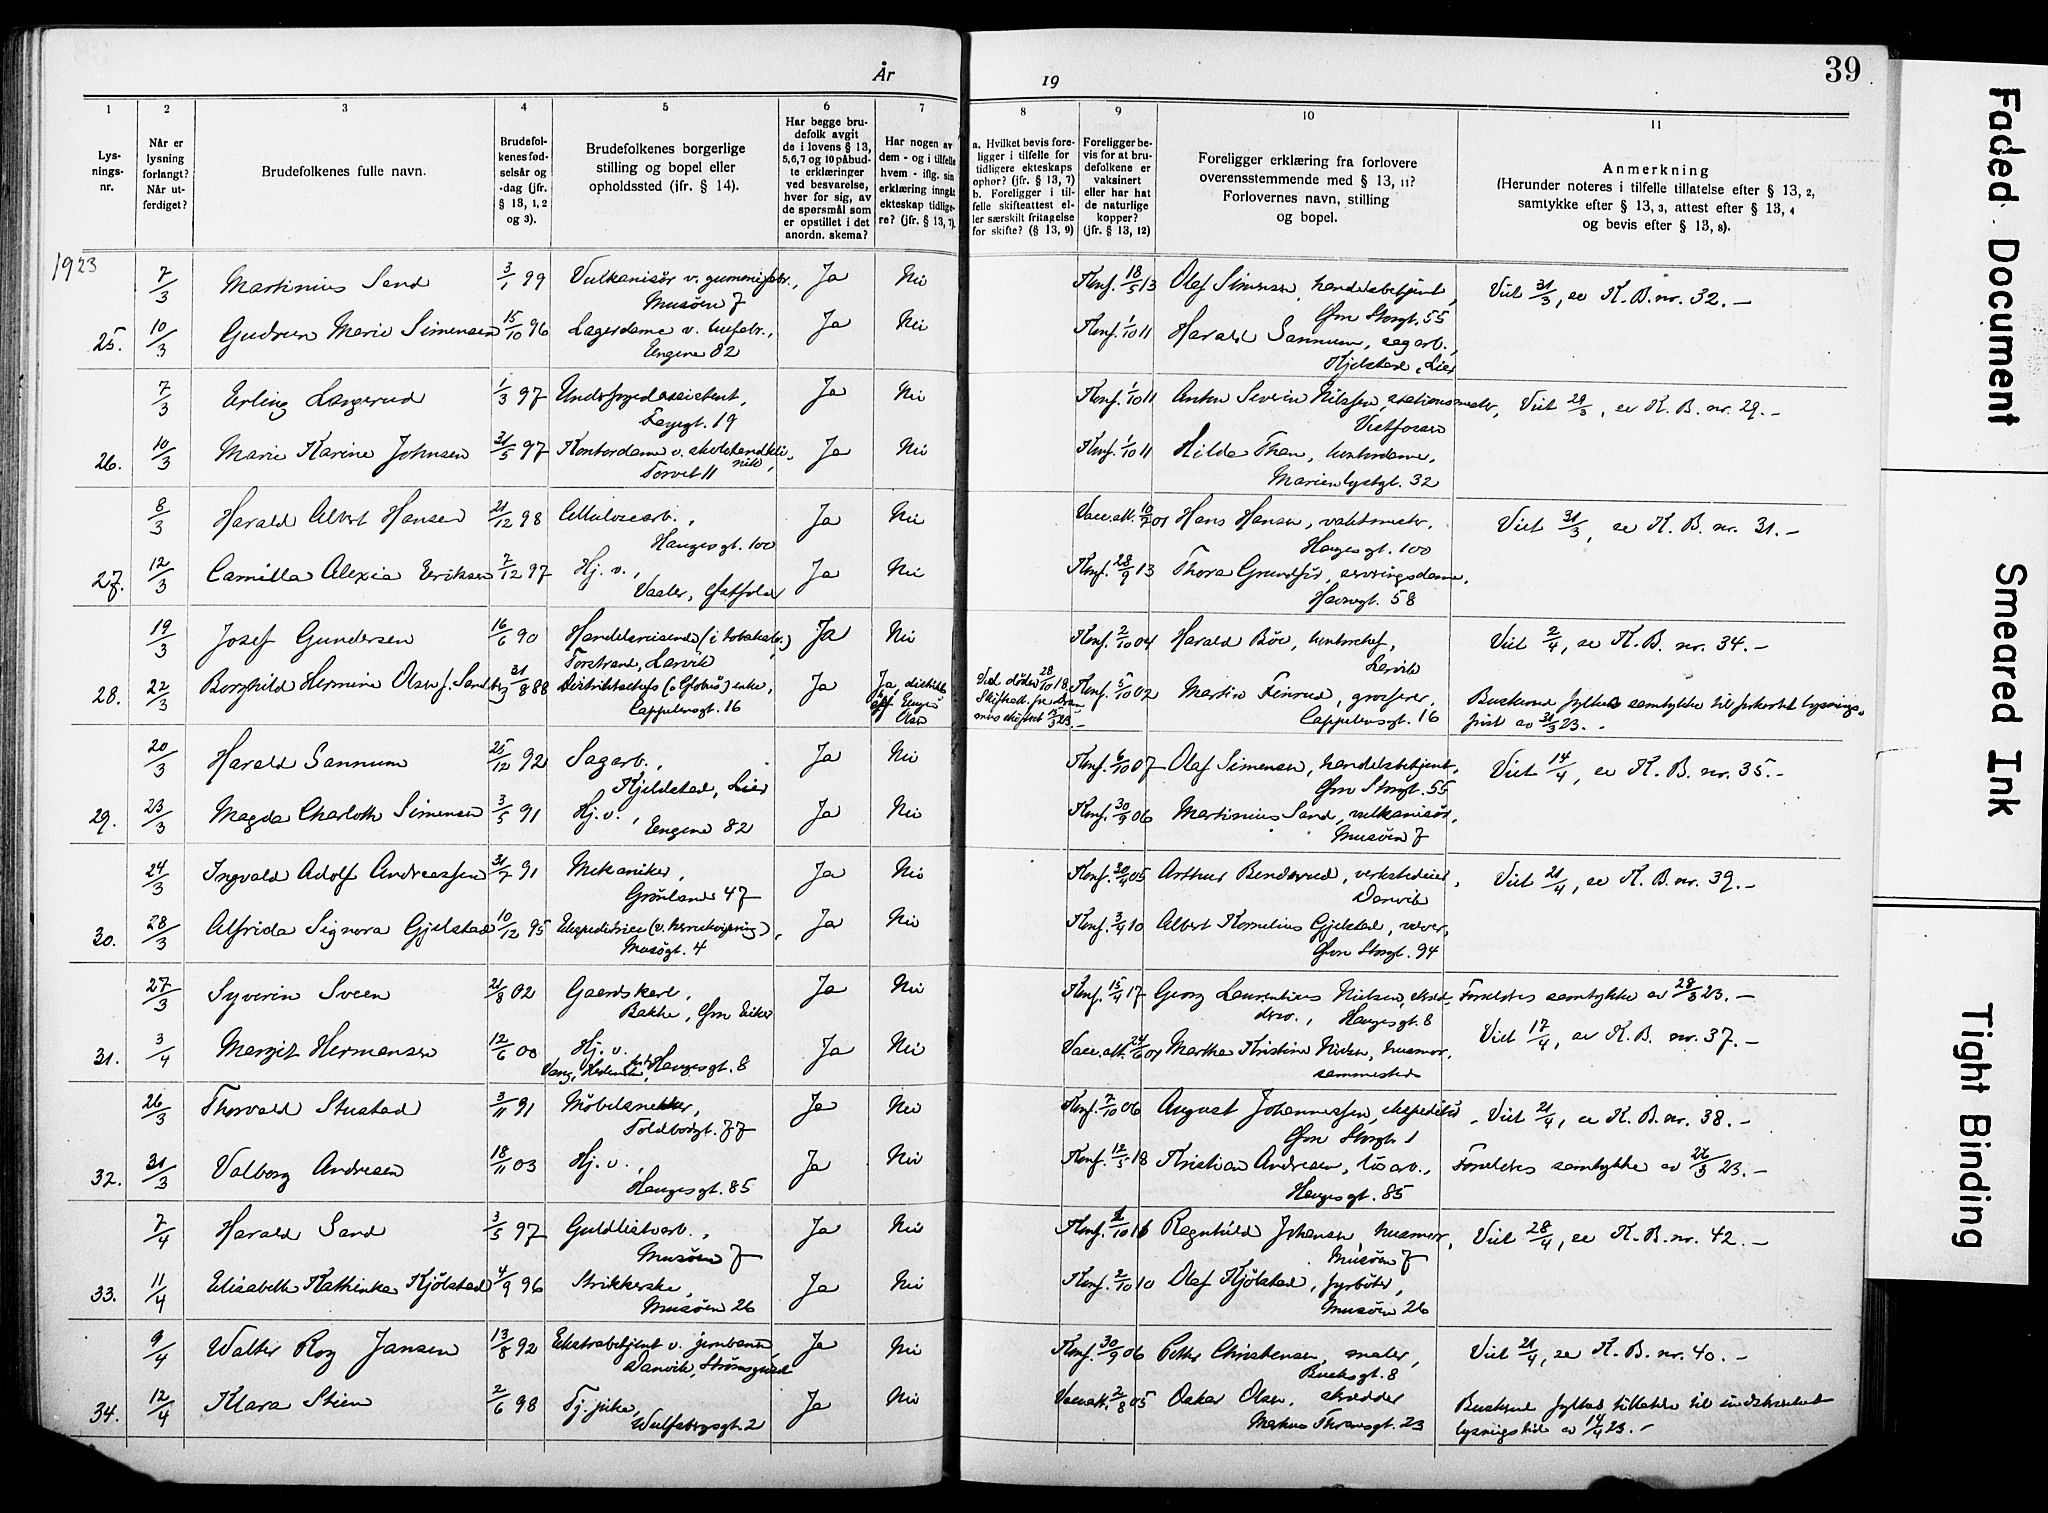 39
År 19
1 2 3 4 5 6 7 8 9 10 11
Lys-
nings-
nr.
Når er
lysning
forlangt?
Når ut-
ferdiget?
Brudefolkenes fulle navn.
Brudefol-
kenes fød-
selsår og
-dag (jfr.
§ 13, 1, 2
og 3).
Brudefolkenes borgerlige
stilling og bopel eller
opholdssted (jfr. § 14).
Har begge bru-
defolk avgit
de i lovens § 13,
5, 6, 7 og 10 påbud-
te erklæringer
ved besvarelse,
hver for sig, av
de spørsmål som
er opstillet i det
anordn. skema?
Har nogen av
dem - og i tilfelle
hvem - iflg. sin
erklæring inngåt
ekteskap tidlige-
re? (jfr. § 13, 7).
a. Hvilket bevis fore-
ligger i tilfelle for
tidligere ekteskaps
ophør? (jfr. § 13, 7)
b. Foreligger i til-
felle skifteattest el-
ler særskilt fritagelse
for skifte? (§ 13, 9)
Foreligger be-
vis for at bru-
defolkene er
vaksinert
eller har hat
de naturlige
kopper?
(jfr. § 13, 12)
Foreligger erklæring fra forlovere
overensstemmende med § 13, 11?
Forlovernes navn, stilling
og bopel.
Anmerkning
(Herunder noteres i tilfelle tillatelse efter § 13, 2,
samtykke efter § 13, 3, attest efter § 13, 4
og bevis efter § 13, 8).
1923
7/3 Martinius Sand 3/1 99 Vulkanisør v. gummifabr., Ja Nei Konf. 18/5 13 Olaf Simensen, handelsbetjent, Viet 31/3, se K. B. nr. 32. -
Musøen 7 Øvn Storgt. 55
25. 10/3 Gudrun Marie Simensen 15/10 96 Lagerdame v. luefabr., Ja Nei Konf. 1/10 11 Harald Sannum, sagarb.,
Engene 82 Kjelstad, Lier
7/3 Erling Langerud 1/3 97 Ja Nei Konf. 1/10 11 Anton Severin Nilssen, stationsmester, Viet 29/3, se K. B. nr. 29. -
19 Vestfossen
26. 10/3 Marie Karine Johnsen 31/5 97 Kontordame v. skoletandkli- Ja Nei Konf. 1/10 11 Hilda Than, kontordame,
nik, Torvet 11 Marienlystgt. 32
8/3 Harald Albert Hansen 21/12 98 Cellulosearb., Ja Nei Vacc.att. 10/7 01 Hans Hansen, vaktmester, Viet 31/3, se K. B. nr. 31. -
Haugesgt. 100 Haugesgt. 100
27. 12/3 Camilla Alexia Eriksen 7/12 97 Hj. v., Ja Nei Konf. 28/9 13 Thora Grundfür, serveringsdame,
Vaaler, Østfold Havnegt. 58
19/3 Josef Gundersen 16/6 90 Handelsreisende (i tobaksbr.), Ja Nei Konf. 2/10 04 Harald Böe, kontorchef, Viet 2/4, se K. B. nr. 34. -
Torstrand, Larvik Larvik
28. 22/3 Borghild Hermine Olsen f. Sandberg 31/8 88 Distriktschefs (i Globus) enke, Ja Ja, Ved döde 28/10 18. Konf. 5/10 02 Martin Finrud, grosserer, Buskerud fylkes samtykke til forkortet lysnings-
Cappelensgt. 16 Olsen Skifteatt. fra Cappelensgt. 16 frist av 21/3 23. -
20/3 Harald Sannum 25/12 92 Sagarb., Ja Nei Konf. 6/10 07 Olaf Simensen, handelsbetjent, Viet 14/4, se K. B. nr. 35. -
Kjeldstad, Lier Øvn Storgt. 55
29. 23/3 Magda Charlotte Simensen 3/5 91 Hj. v., Ja Nei Konf. 30/9 06 Martinius Sand, vulkanisør,
Engene 82 Musøen 7
24/3 Ingvald Adolf Andreassen 31/7 91 Mekaniker, Ja Nei Konf. 30/4 05 Arthur Benderud, verkstedeier, Viet 21/4, se K. B. nr. 39. -
Grønland 47 Danvik
30. 28/3 Alfrida Signora Gjelstad 10/12 95 Ekspeditrice (v. herreekvipering), Ja Nei Konf. 3/4 10 Albert Kornelius Gjelstad, væver,
Musøgt. 4 Øvn Storgt. 94
27/3 Syverin Sveen 21/8 02 Gaardskarl, Ja Nei Konf. 15/4 17 Georg Laurentius Nilsen, Foreldres samtykke av 28/3 23. -
Bakke, Øvn Eiker Haugesgt. 8
31. 3/4 Margit Hermansen 12/6 00 Hj. v. Ja Nei Vacc.att. 24/6 01 Martha Kristine Nilsen, husmor, Viet 17/4, se K. B. nr. 37. -
Vang, Hedmark, Haugesgt. 8 sammesteds
26/3 Thorvald Stustad 3/11 91 Möbelsnekker, Ja Nei Konf. 7/10 06 August Johannessen, ekspeditør Viet 21/4, se K. B. nr. 38. -
Toldbodgt. 77 Øvn Storgt. 1
32. 31/3 Valborg Andresen 18/11 03 Hj. v., Ja Nei Konf. 12/5 18 Kristian Andresen, løsarb., Foreldres samtykke av 22/3 23. -
Haugesgt. 85 Haugesgt. 85
7/4 Harald Sand 3/5 97 Guldlistarb., Ja Nei Konf. Ragnhild Johansen, husmor, Viet 28/4, se K. B. nr. 42. -
Musøen 7 Musøen 7
33. 11/4 Elisabeth Kathinka Kjölstad 4/9 96 Strikkerske, Ja Nei Konf. 2/10 10 Olaf Kjölstad, fyrböter,
Musøen 26 Musøen 26
9/4 Walter Roy Jansen 13/8 92 Ekstrabetjent v. jernbanen, Ja Nei Konf. 30/9 06 Petter Christensen, maler, Viet 21/4, se K. B. nr. 40. -
Danvik, Strømsgodset Bueksgt. 8
34. 12/4 Klara Stien 2/6 98 Tj. pike, Ja Nei Vacc.att. 2/8 05 Oskar Olsen, skredder Buskerud fylkes tillatelse til indskrenket
Wulfsbergsgt. 2 Markus Thranesgt. 23 lysningstid av 14/4 23. -
Faded Document
Smeared Ink
Tight Binding